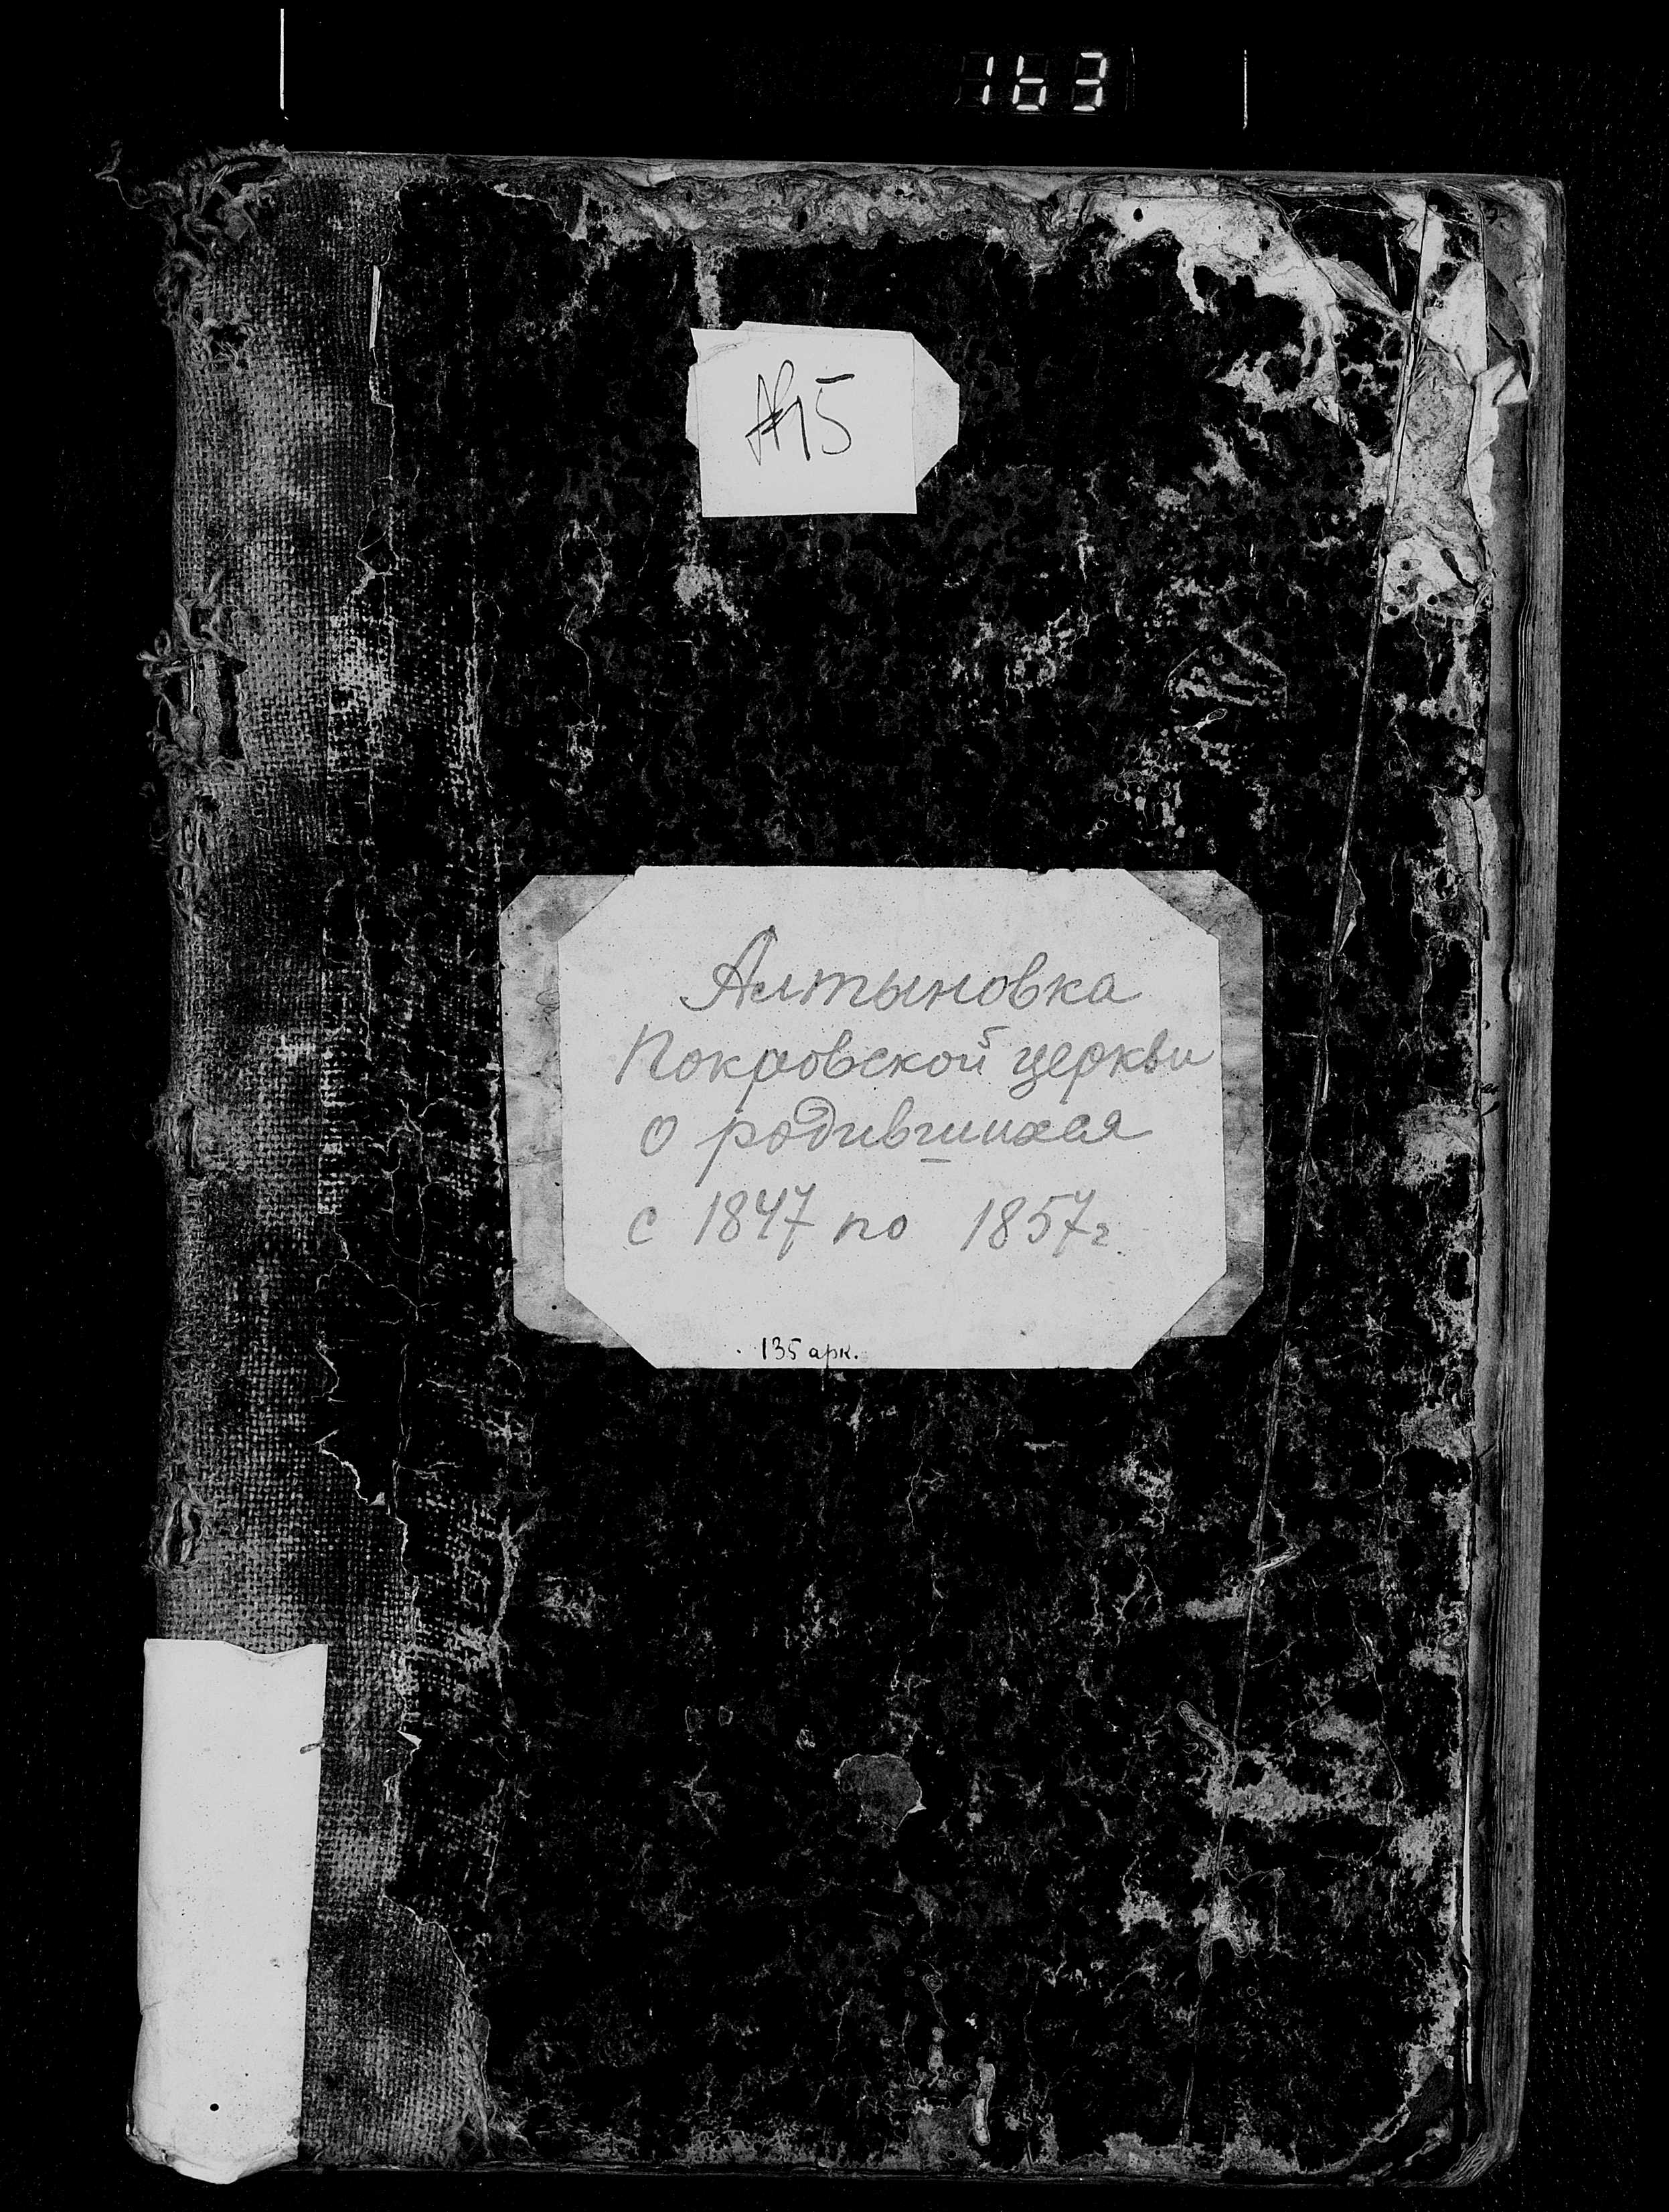 163
№15
Алтыновка
Покровской церкви
о родившихся
с 1847 по 1857г.
135 арк.